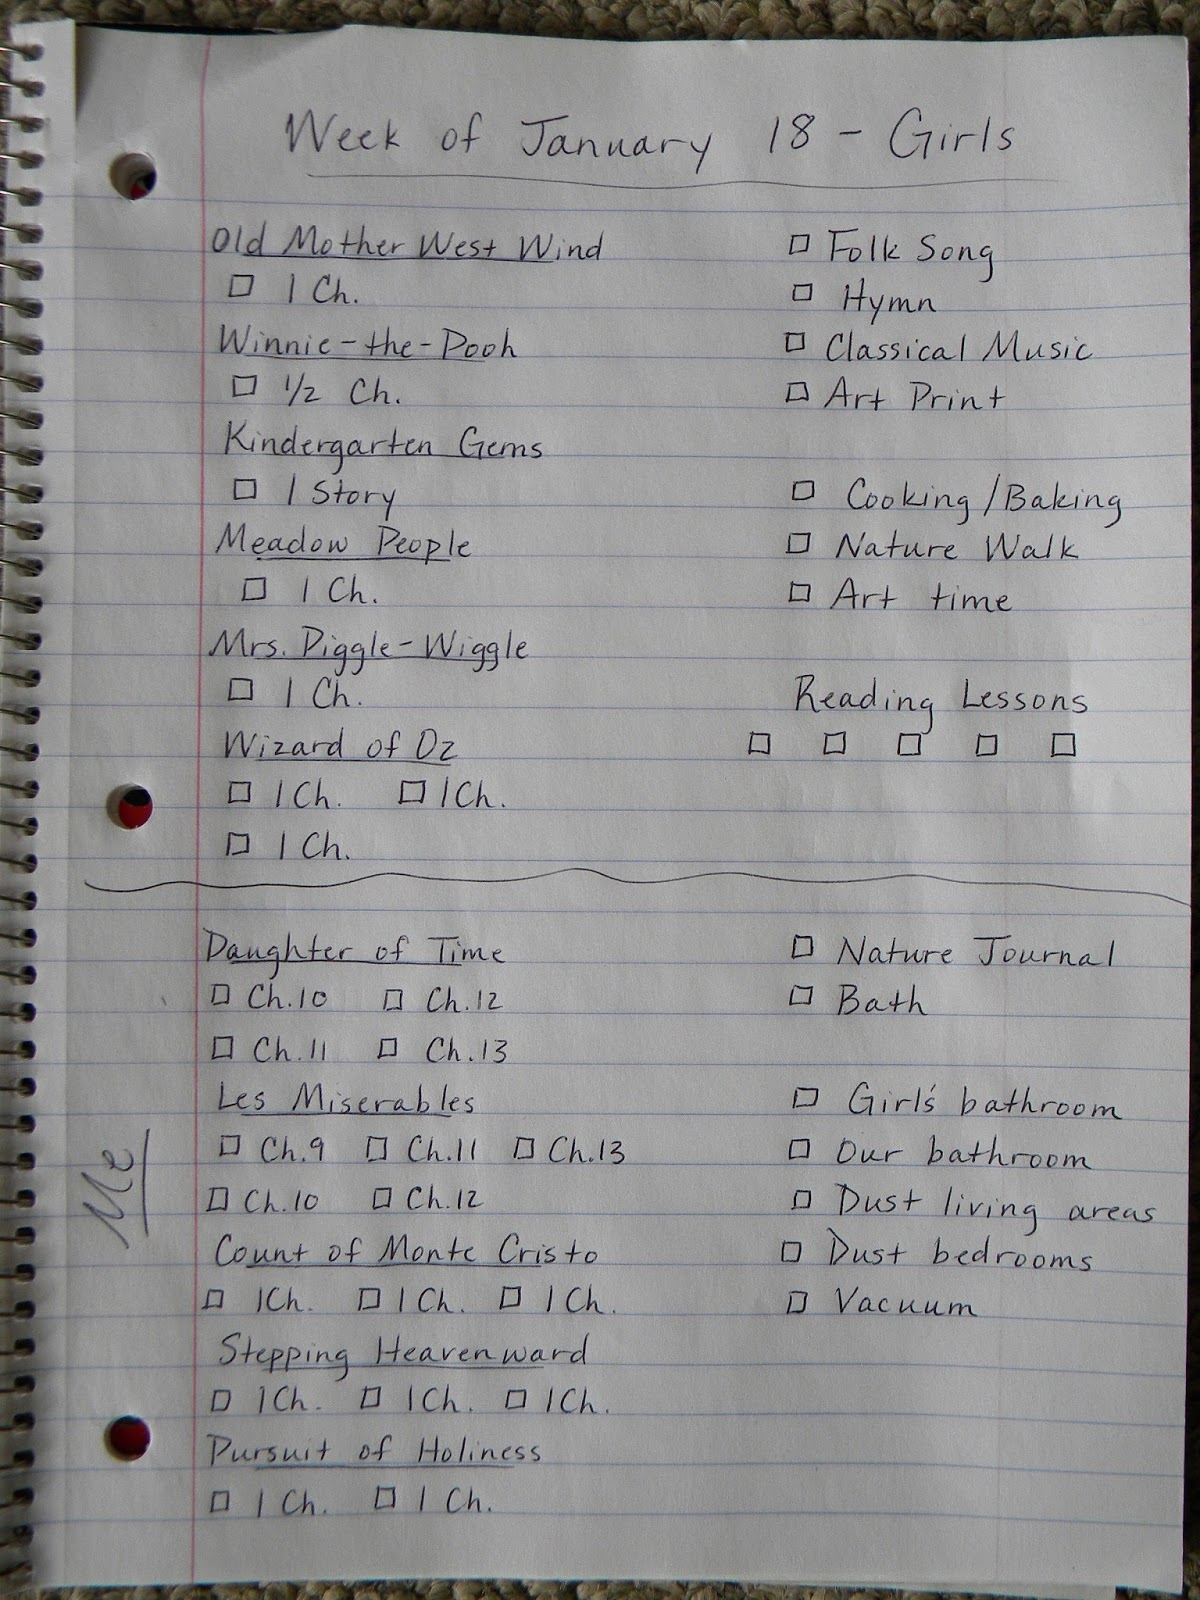 Week of January 18 - Girls
Old Mother West Wind
□ 1 Ch.
Winnie-the-Pooh
□ 1/2 Ch.
Kindergarten Gems
□ 1 Story
Meadow People
□ 1 Ch.
Mrs. Piggle-Wiggle
□ 1 Ch.
Wizard of Oz
□ 1 Ch. □ 1 Ch.
□ 1 Ch.
□ Folk Song
□ Hymn
□ Classical Music
□ Art Print
□ Cooking/Baking
□ Nature Walk
□ Art time
Reading Lessons
□ □ □ □ □
Me
Daughter of Time
□ Ch.10 □ Ch.12
□ Ch.11 □ Ch.13
Les Miserables
□ Ch.9 □ Ch.11 □ Ch.13
□ Ch.10 □ Ch.12
Count of Monte Cristo
□ 1 Ch. □ 1 Ch. □ 1 Ch.
Stepping Heavenward
□ 1 Ch. □ 1 Ch. □ 1 Ch.
Pursuit of Holiness
□ 1 Ch. □ 1 Ch.
□ Nature Journal
□ Bath
□ Girl's bathroom
□ Our bathroom
□ Dust living areas
□ Dust bedrooms
□ Vacuum